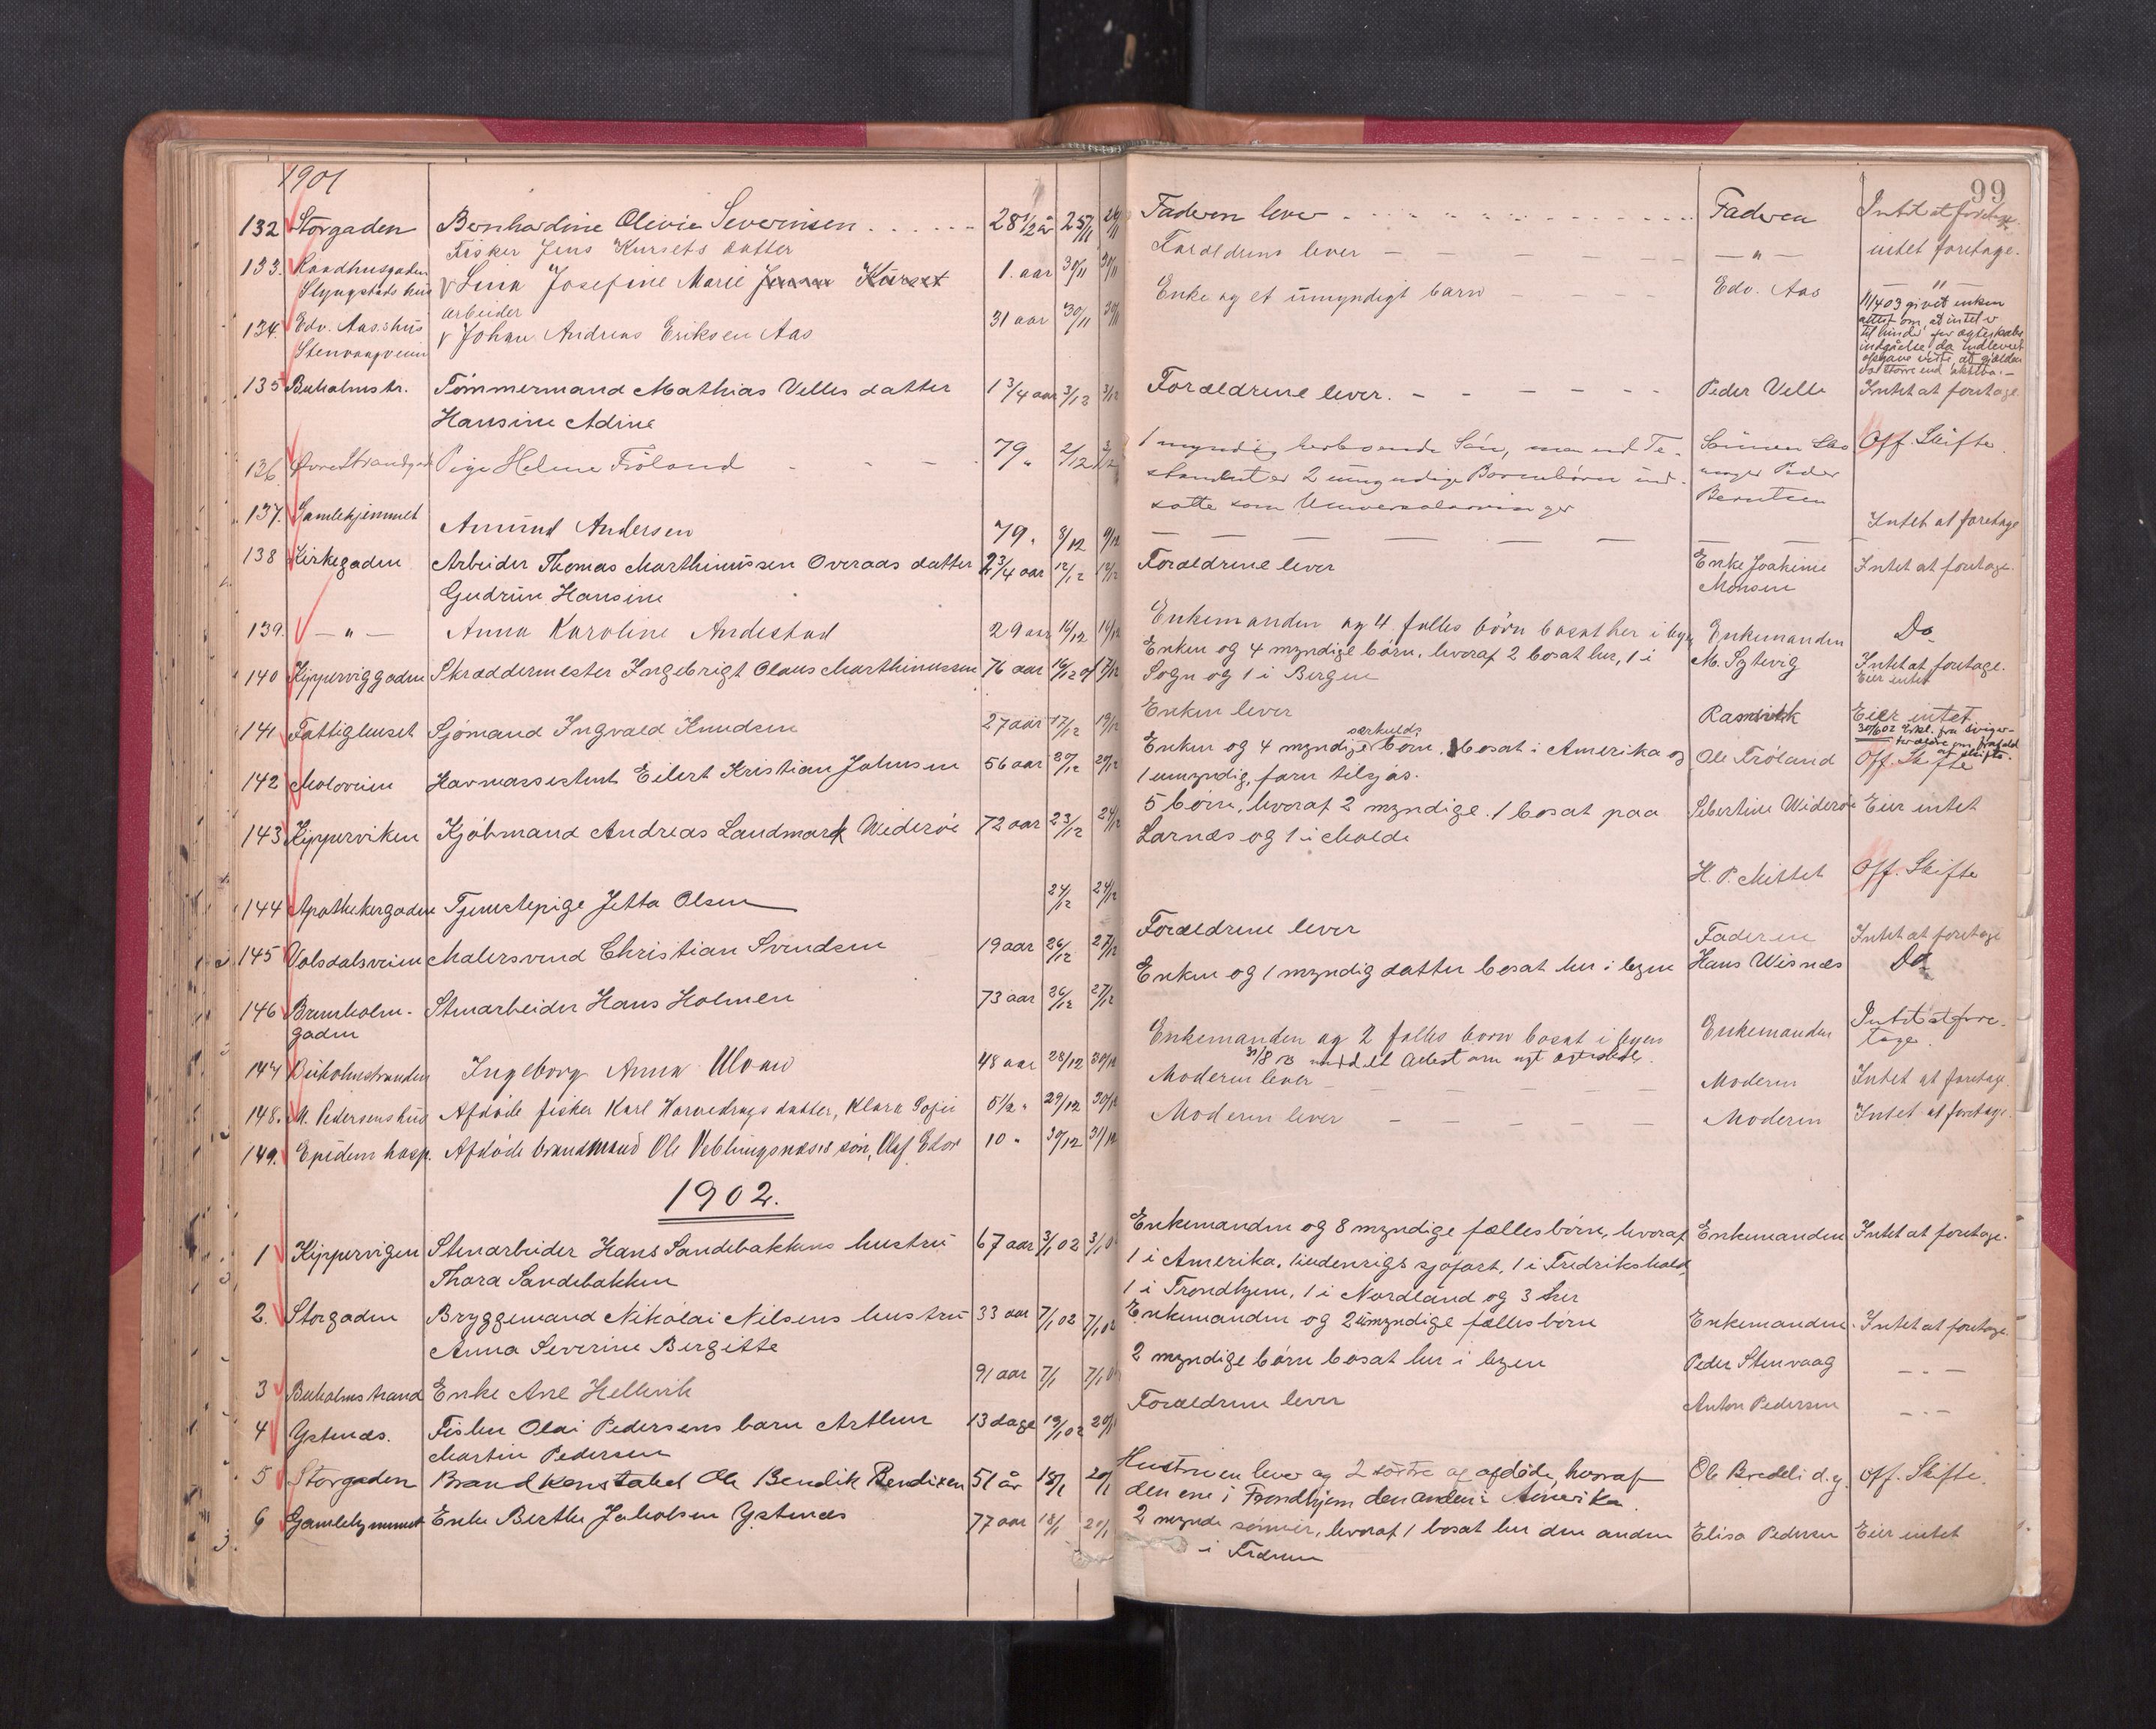 1901
99
132 Storgaden Bernhardine Olivie Severinsen 28 1/2 år 25/11 26/11 Faderen lever Faderen Intet at foretage.
133. Raadhusgaden Fisker Jens Kursets datter
Slyngstads hus Lina Josefine Marie Kurset 1. aar 30/11 30/11 Forældrene lever — " — intet foretage.
134. Edv. Aas.s hus arbeider
Stenvaagveien Johan Andreas Eriksen Aas 31 aar 30/11 30/11 Enke og et umyndigt barn Edv. Aas — " —
11/4 03 givet enken
attest om, at intet er
til hinder for ægteskabs
indgåelse, da indleveret
opgave viste, at gjælden
var større end aktiva. —
135 Buholmstr. Tømmermand Mathias Velles datter 1 3/4 aar 3/12 3/12 Forældrene lever. Peder Velle Intet at foretage.
Hansine Adine
136. Øvre Strandgade Pige Helene Fröland 79 " 2/12 3/12 1 myndig herboende Sön, men ved Te- Off. Skifte.
stamentet er 2 umyndige Barnebörn ind- Peder
satte som Universalarvinger Berntsen
137. Gamlehjemmet Amund Andersen 79 " 8/12 9/12 — — — — — Intet at foretage
138 Kirkegaden Arbeider Thomas Marthinussen Overaas datter 2 3/4 aar 12/12 12/12 Forældrene lever Enke Joakime Intet at foretage.
Gudrun Hansine Monsen
139. — " — Anna Karoline Andestad 29 aar 16/12 16/12 Enkemanden og 4 fælles börn bosat her i byen Enkemanden Do
140 Kipperviggaden Skræddermester Ingebrigt Olaus Marthinussen 76 aar 16/12 01 17/12 Enken og 4 myndige børn, hvoraf 2 bosat her, 1 i M. Sytevig Intet at foretage.
Sogn og 1 i Bergen Eier intet
141 Fattighuset Sjömand Ingvald Knudsen 27 aar 17/12 19/12 Enken lever Ramsvik Eier intet
30/6 02 Erkl. fra sviger-
forældre om frafald
af skifte.
142 Moloveien Havneassistent Eilert Kristian Johnsen 56 aar 20/12 20/12 Enken og 4 myndige særkulds børn, bosat i Amerika og Ole Fröland Off. Skifte
1 umyndig, farer tilsjøs.
143 Kipperviken Kjøbmand Andreas Landmark Widerøe 72 aar 23/12 24/12 5 børn, hvoraf 2 myndige. 1 bosat paa Sebertine Widerøe Eier intet
Larsnes og 1 i Molde
144 Apothekergaden Tjenestepige Jetta Olsen 24/12 24/12 H. P. Mittet Off. Skifte
145 Volsdalsveien Malersvend Christian Svendsen 19 aar 26/12 27/12 Forældrene lever Faderen Intet at foretage
146 Brunholm- Stenarbeider Hans Holmen 73 aar 26/12 27/12 Enken og 1 myndig datter bosat her i byen Hans Wisnæs Do
gaden
147 Buholmstranden Ingeborg Anna Ulvau 48 aar 28/12 30/12 Enkemanden og 2 fælles börn bosat i byen Enkemanden Intet at fore-
tage.
31/8 meddelt Attest om nyt ægteskab.
148. M. Pedersens hus Afdöde fisker Karl Harnedrags datter, Klara Sofie 5 1/2 " 29/12 30/12 Moderen lever Moderen Intet at foretage.
149. Epidem hosp. Afdöde brandmand Ole Veblungsnæses sön, Olaf Edor 10 " 30/12 31/12 Moderen lever Moderen Intet at foretage.
1902.
1 Kippervigen Stenarbeider Hans Sandebakkens hustru 67 aar 3/1 02 3/1 02 Enkemanden og 8 myndige fællesbørn, hvoraf Enkemanden Intet at foretage.
Thora Sandebakken 1 i Amerika, 1 i udenrigs sjøfart, 1 i Fredrikshald,
1 i Trondhjem, 1 i Nordland og 3 her
2. Storgaden Bryggemand Nikolai Nilsens hustru 33 aar 7/1 02 7/1 02 Enkemanden og 2 umyndige fællesbørn Enkemanden. Intet at foretage.
Anna Severine Bergitte
3 Buholmstrand Enke Ane Hellevik 91 aar 7/1 7/1 02 2 myndige børn bosat her i byen Peder Stenvaag — " —
4 Ystenæs. Fisker Olai Pedersens barn Arthur 13 dage 19/1 02 20/1 Forældrene lever Anton Pedersen — " —
Martin Pedersen
5 Storgaden Brandkonstabel Ole Bendik Bendixen 51 år 18/1 20/1 Hustruen lever og 2 søstre af afdöde, hvoraf Ole Bredeli d.y. Off. Skifte.
den ene i Trondhjem den anden i Amerika.
6 Gamlehjemmet Enke Berthe Jakobsen Ystenæs 77 aar 18/1 21/1 2 mynde sønner, hvoraf 1 bosat her den anden Elisa Pedersen Eier intet
i